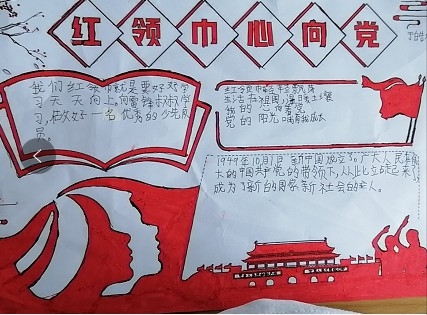 红领巾心向党
我们红领巾就是要好好学
习天天向上。向雷锋叔叔学
习,做好一名优秀的少先队
员。
红领巾
生活在祖国
我的心向着
党的阳光哺育我成长
1949年10月1日新中国成立了。广大人民在伟
大的中国共产党的带领下,从此站立起来了
成为了新的国家新社会的主人。